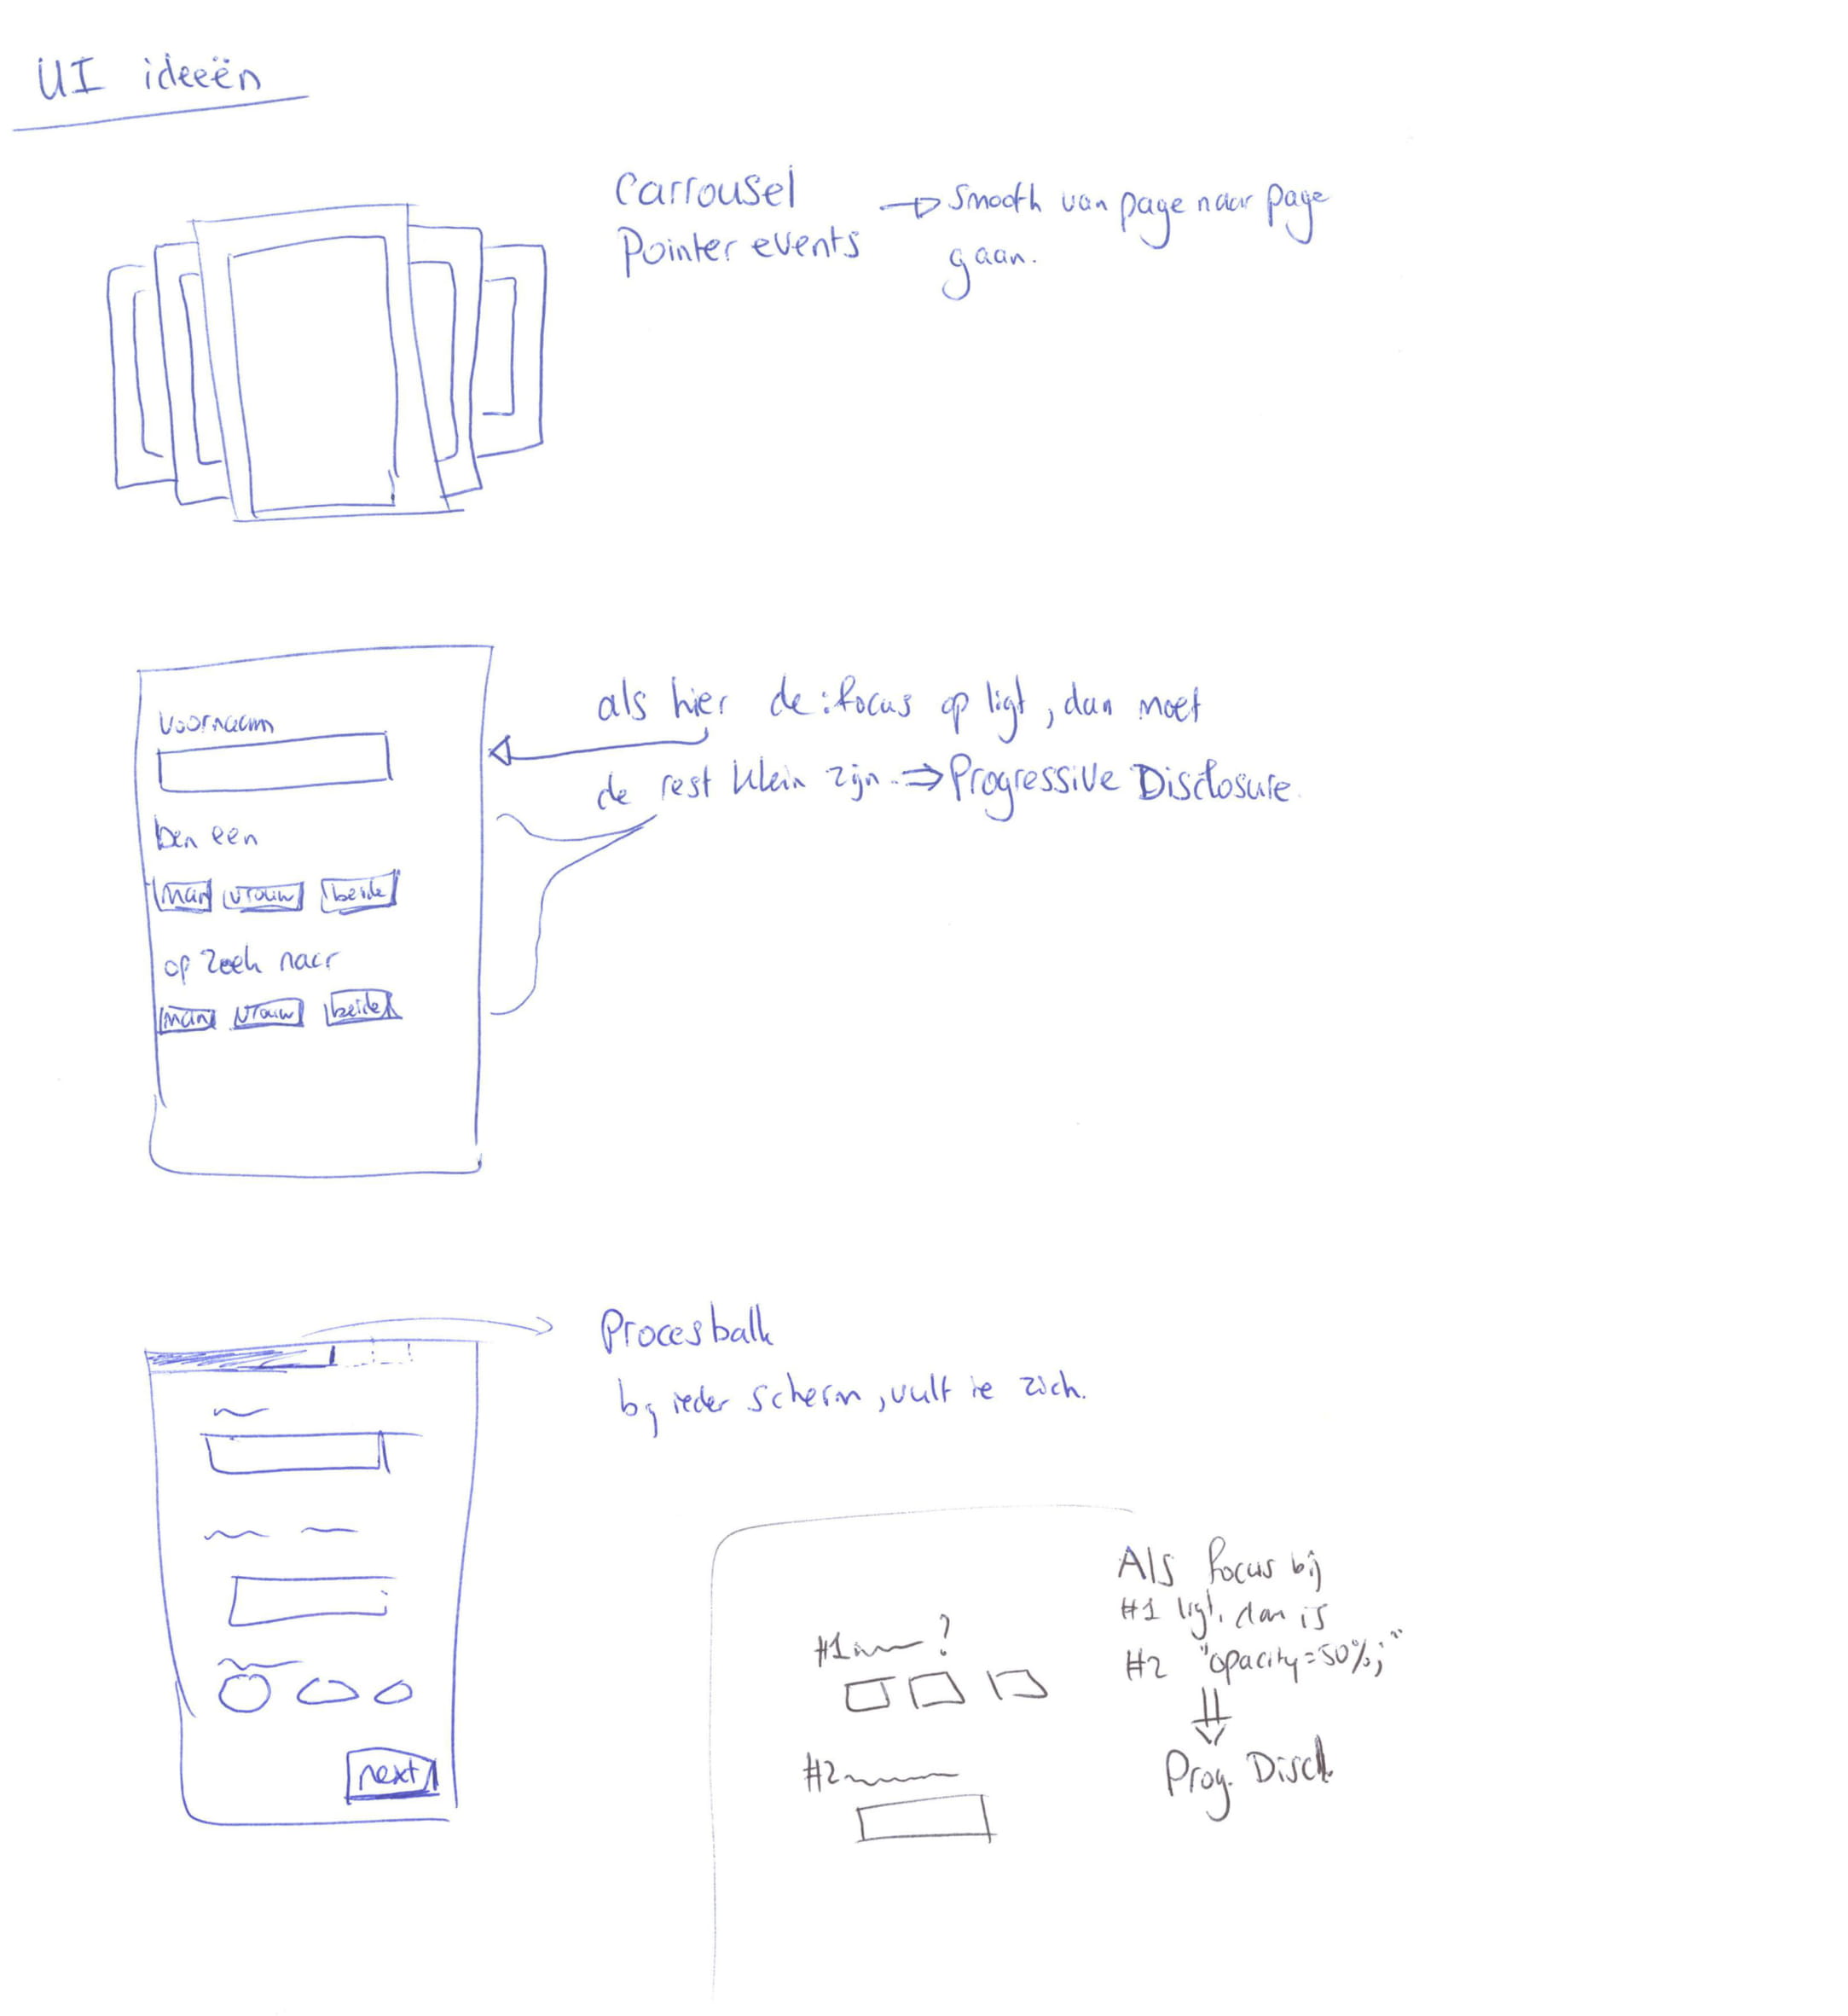 UI ideeën
Carrousel
Pointer events
smooth van page naar page
gaan.
voornaam
ben een
man vrouw beide
op zoek naar
man vrouw beide
als hier de :focus op ligt, dan moet
de rest klein zijn. ⇒ Progressive Disclosure.
Procesbalk
bij ieder scherm, vult ie zich.
next
#1 ?
#2
Als focus bij
#1 ligt, dan is
#2 "opacity=50%;"
Prog. Discl.